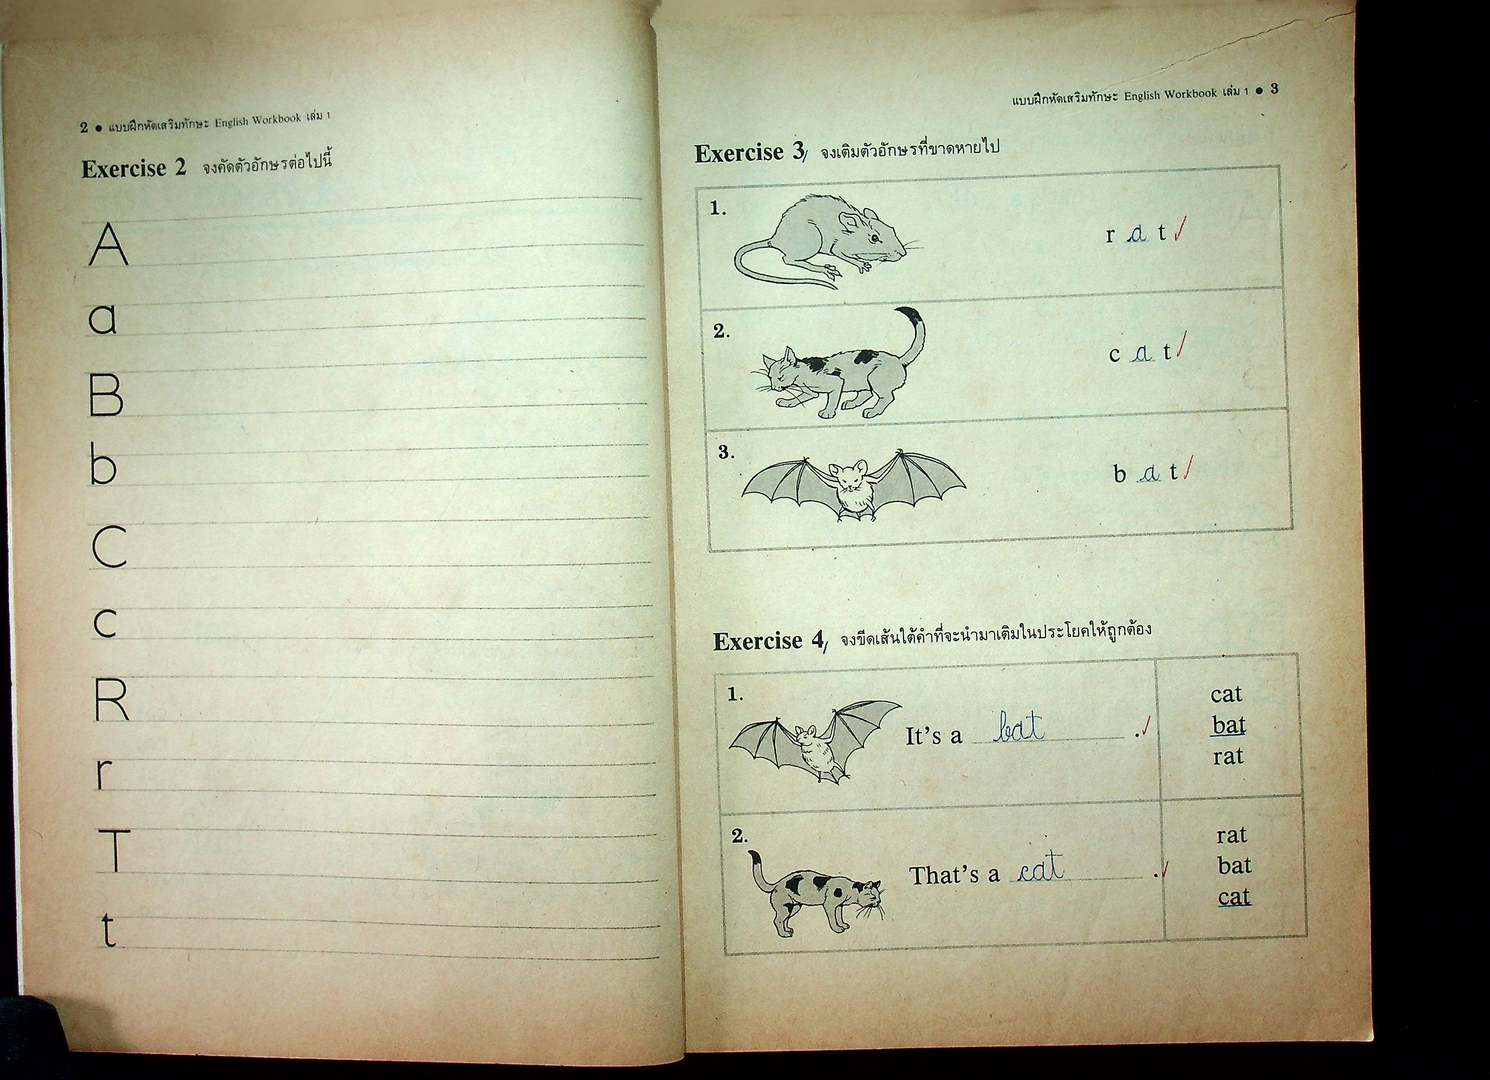 2 ● แบบฝึกหัดเสริมทักษะ English Workbook เล่ม 1
Exercise 2 จงคัดตัวอักษรต่อไปนี้
A
a
B
b
C
c
R
r
T
t
แบบฝึกหัดเสริมทักษะ English Workbook เล่ม 1 ● 3
Exercise 3 จงเติมตัวอักษรที่ขาดหายไป
1. r a t
2. c a t
3. b a t
Exercise 4 จงขีดเส้นใต้คำที่จะนำมาเติมในประโยคให้ถูกต้อง
1. It's a bat .
cat
bat
rat
2. That's a cat .
rat
bat
cat